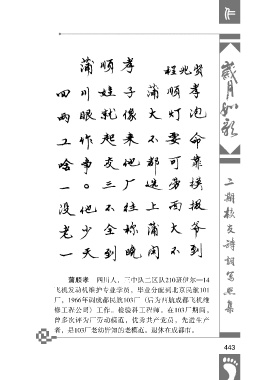 蒲顺孝
程兆贤
四川娃子蒲顺孝
两眼就像大灯泡
工作起来不要命
啥事交他都可靠
一〇三厂选劳模
没他不往上面报
老少全称蒲大爷
一天到晚闲不到
蒲顺孝 四川人，三中队二区队210班伊尔—14
飞机发动机维护专业学员，毕业分配到北京民航101
厂，1966年调成都民航103厂（后为西航成都飞机维
修工程公司）工作。检验科工程师。在103厂期间，
曾多次评为厂劳动模范，优秀共产党员，先进生产
者，是103厂老幼皆颂的老模范。退休在成都市。
岁月如歌
二期校友诗词写照集
443